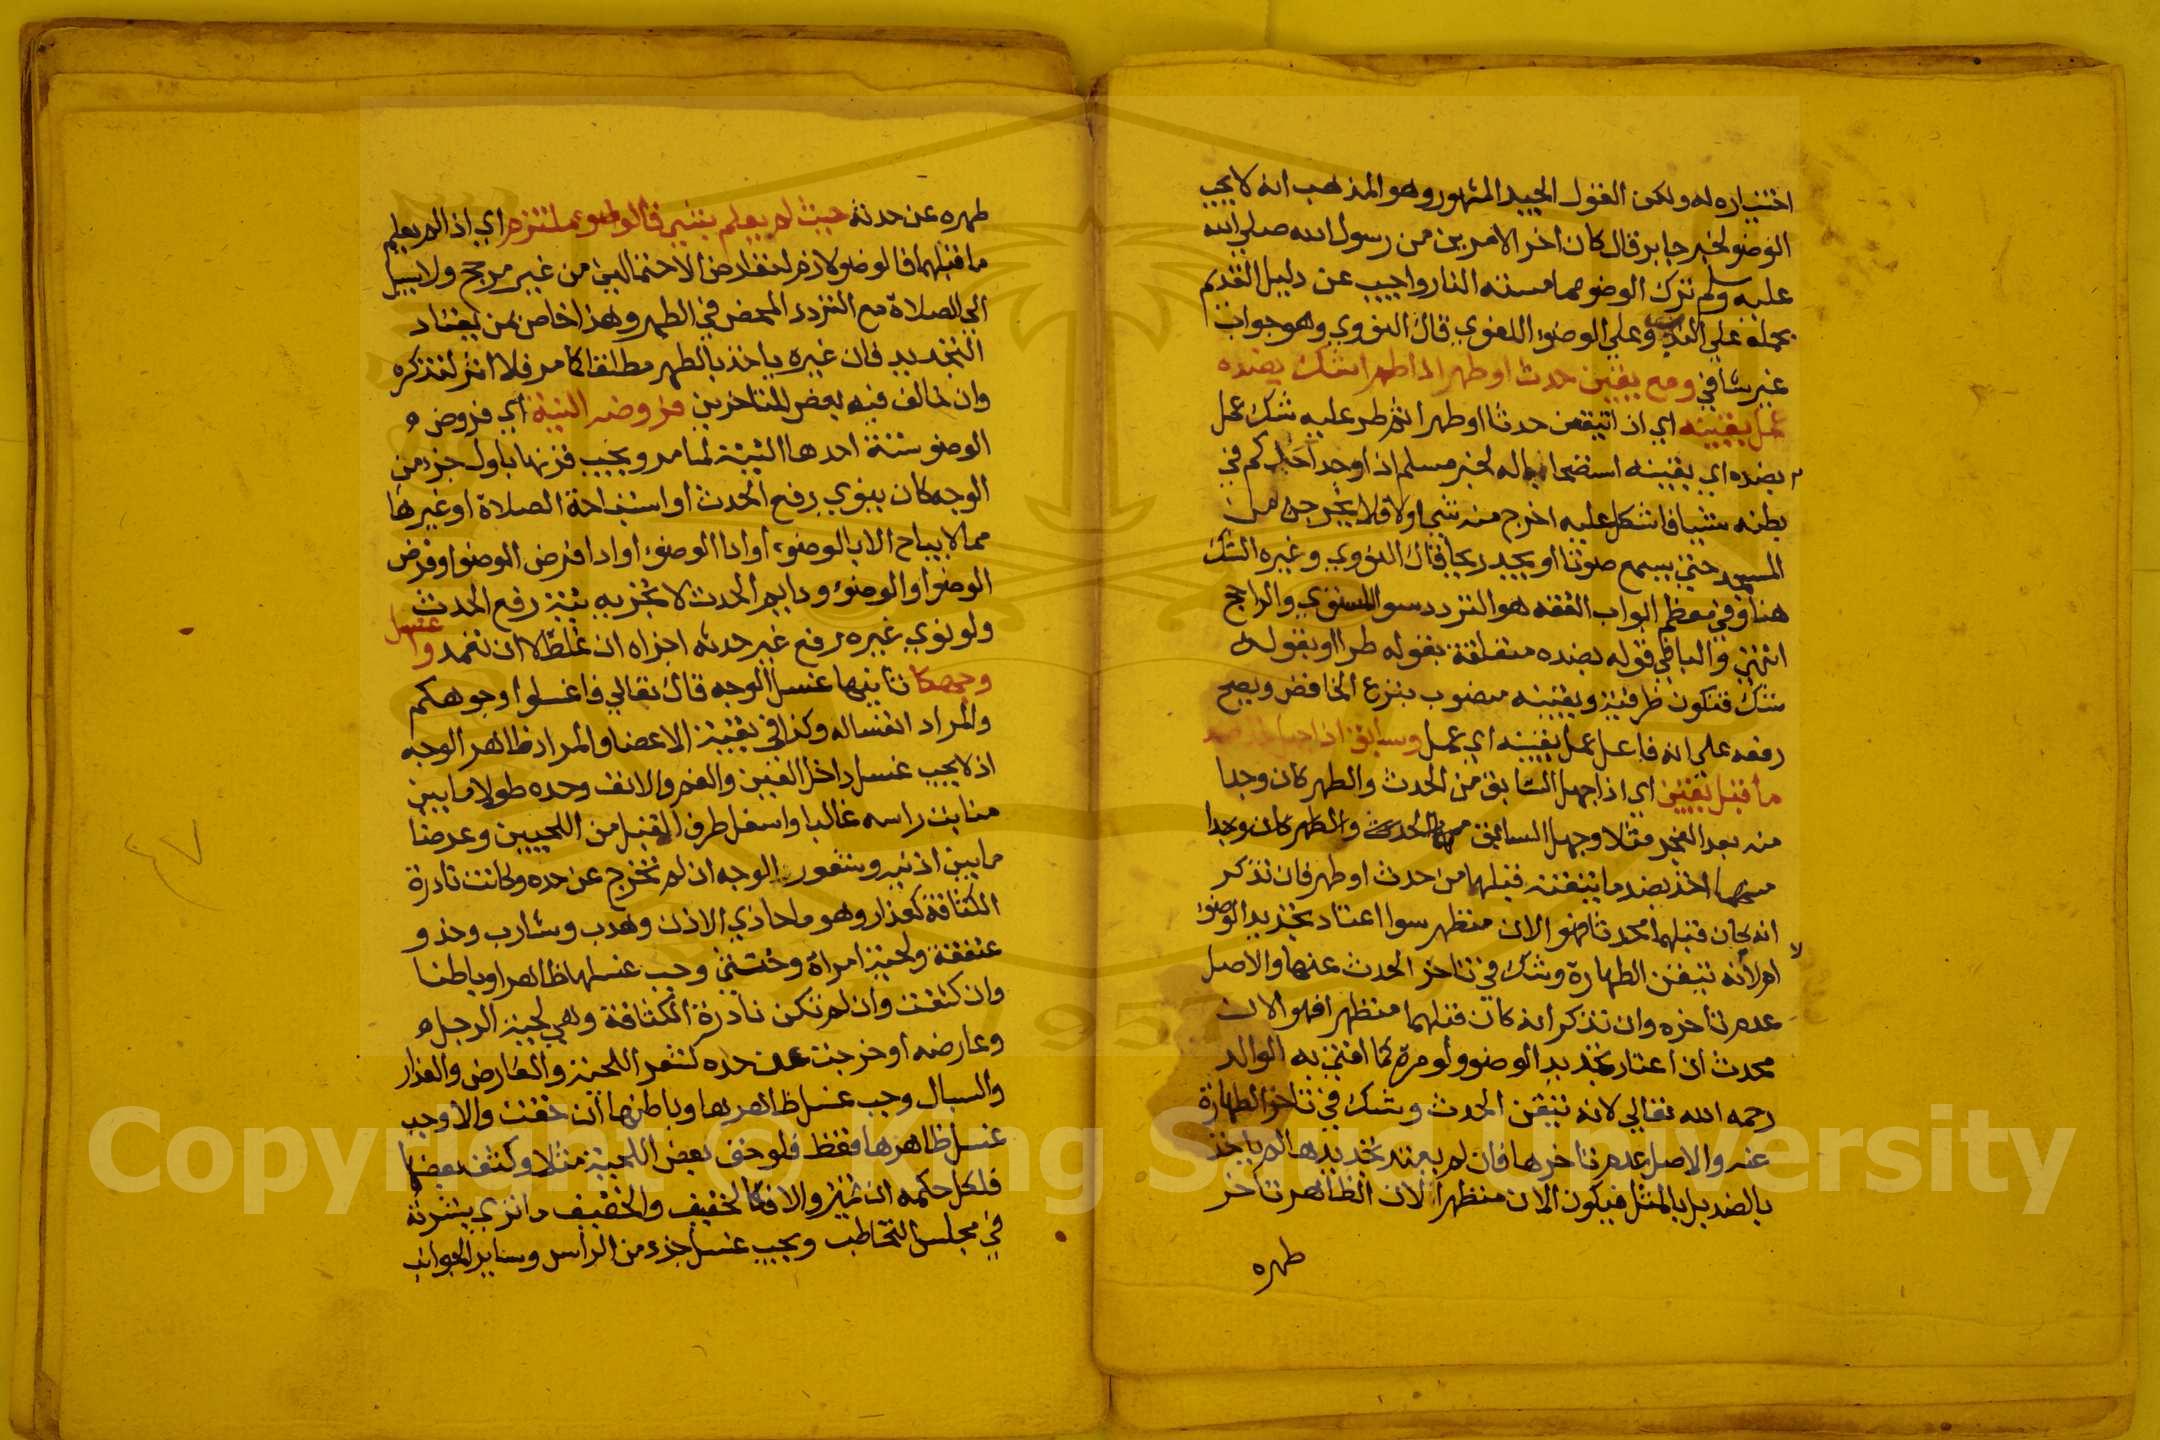 اختياره له ولكن القول الجديد المشهور وهو المذهب انه لا يجب
الوضو لخبر جابر قال كان اخر الامرين من رسول الله صلى الله
عليه وسلم ترك الوضو مما مسته النار واجيب عن دليل القديم
بحمله على الندب وعلى الوضوء اللغوي قال النووي وهو جواب
غير شافي ومع يقين حدث او طهر اذا طرا شك بضده
عمل بيقينه اي ان تيقن حدثا او طهرا ثم طر عليه شك عمل
بضده اي بيقينه استصحابا له لخبر مسلم اذا وجد احدكم في
بطنه شيا فاشكل عليه اخرج منه شي اولا فلا يخرجن من
المسجد حتى يسمع صوتا او يجد ريحا قال النووي وغيره الشك
هنا وفي معظم ابواب الفقه هو التردد سوا المستوي والراجح
انتهى والبا في قوله بضده متعلقة بقوله طرا او بقوله
شك فتكون ظرفية وبيقينه منصوب بنزع الخافض ويصح
رفعه على انه فاعل عمل بيقينه اي عمل وسابق اذا جهل خذ ضد
ما قبل يقين اي اذا جهل السابق من الحدث والطهر كان وجدا
منه بعد الفجر مثلا وجهل السابق منهما الحدث والطهر كان وجدا
منهما اخذ بضد ما تيقنه قبلهما من حدث او طهر فان تذكر
انه كان قبلهما محدثا فهو الان متطهر سوا اعتاد تجديد الوضو
ام لا لانه تيقن الطهارة وشك في تاخر الحدث عنها والاصل
عدم تاخره وان تذكر انه كان قبلهما متطهرا فهو الان
محدث ان اعتاد تجديد الوضو ولو مرة كما افتى به الوالد
رحمه الله تعالى لانه تيقن الحدث وشك في تاخر الطهارة
عنه والاصل عدم تاخرها فان لم يعتد تجديدها لم ياخذ
بالضد بل بالمثل فيكون الان متطهرا لان الظاهر تاخر
طهره
طهره عن حدثه حيث لم يعلم بشي فالوضوء ملتزم اي اذا لم يعلم
ما قبلهما فالوضو لازم لتعارض الاحتمالين من غير مرجح ولا سبيل
الى الصلاة مع التردد المحض في الطهر وهذا خاص بمن يعتاد
التجديد فان غيره ياخذ بالطهر مطلقا كما مر فلا اثر لتذكره
وان خالف فيه بعض المتاخرين فروضه النية اي فروض
الوضو ستة احدها النية لما مر ويجب قرنها باول جزء من
الوجه كان ينوي رفع الحدث او استباحة الصلاة او غيرها
مما لا يباح الا بالوضوء او ادا الوضوء او ادا فرض الوضو او فرض
الوضو او الوضوء ودايم الحدث لا تجزيه نية رفع الحدث
ولو نوى غيره رفع غير حدثه اجزاه ان غلط لا ان تعمد واغسل
وجهكا ثانيها غسل الوجه قال تعالى فاغسلوا وجوهكم
والمراد انغساله وكذا في بقية الاعضا والمراد ظاهر الوجه
اذ لا يجب غسل داخل العين والفم والانف وحده طولا ما بين
منابت راسه غالبا واسفل طرف المقبل من اللحيين وعرضا
ما بين اذنيه وشعور الوجه ان لم تخرج عن حده وكانت نادرة
الكثافة كعذار وهو ما حاذى الاذن وهدب وشارب وخد و
عنفقة ولحية امراة وخنثى وجب غسلها ظاهرا وباطنا
وان كثفت وان لم تكن نادرة الكثافة وهي لحية الرجل
وعارضه او خرجت عن حده كشعر اللحية والعارض والعذار
والسبال وجب غسل ظاهرها وباطنها ان خفت والا وجب
غسل ظاهرها فقط فلو خف بعض اللحية مثلا وكثف بعضها
فلكل حكمه ان تميز والا فكالخفيف والخفيف ما ترى بشرته
في مجلس التخاطب ويجب غسل جزء من الراس وساير الجوانب
Copyright © King Saud University
1957